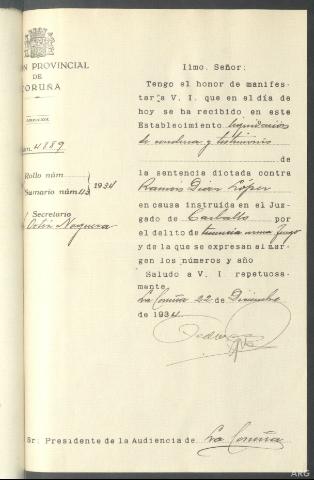 ON PROVINCIAL
DE
CORUÑA
DIRECCION
m. 4889
Rollo núm
Sumario núm 113 1934
Secretario
Ortín Noguera
Ilmo. Señor:
Tengo el honor de manifes-
tar a V. I. que en el día de
hoy se ha recibido en este
Establecimiento liquidación
de condena y testimonio
de
la sentencia dictada contra
Ramón Díaz López
en causa instruida en el Juz-
gado de Carballo por
el delito de tenencia arma fuego
y de la que se expresan al mar-
gen los números y año
Saludo a V. I repetuosa-
mente.
La Coruña 22 de Diciembre
de 1934.
Sr: Presidente de la Audiencia de La Coruña
ARG